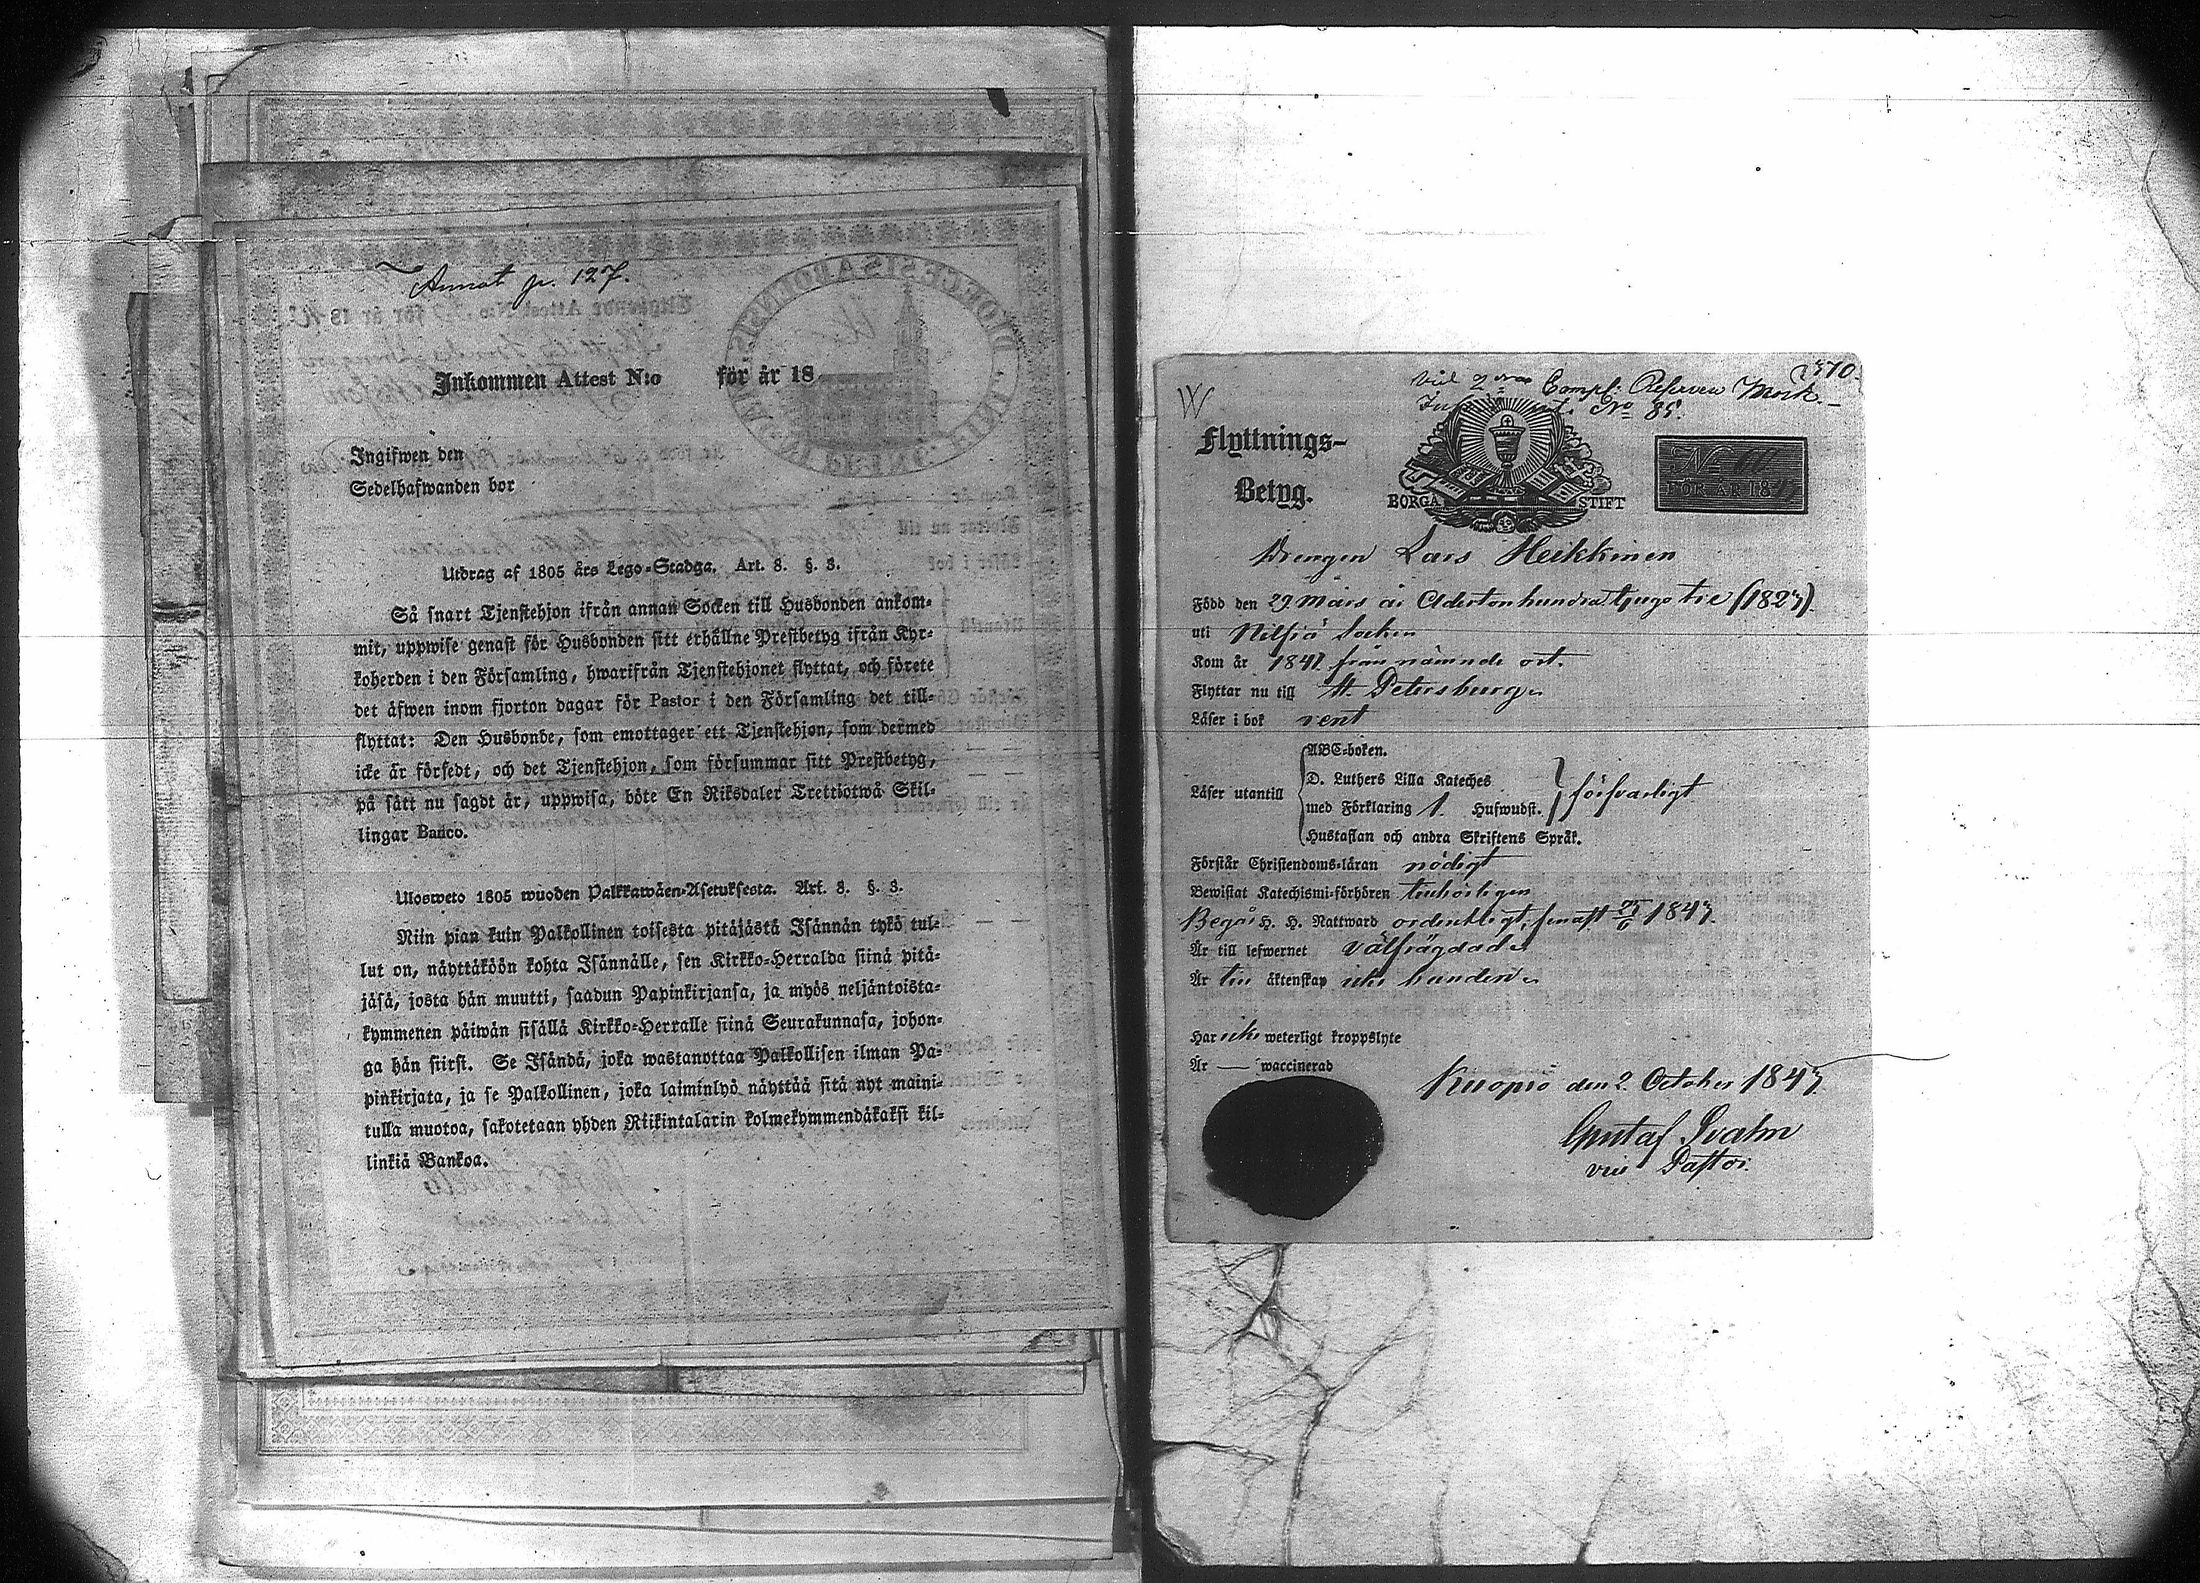 Annot p. 127.
Inkommen Attest N:o för år 18
Ingifwen den
Sedelhafwanden bor
Utdrag af 1805 års Lego-Stadga. Art. 8. §. 3.
Så snart Tjenstehjon ifrån annan Socken till Husbonden ankom-
mit, uppwise genast för Husbonden sitt erhållne Prestbetyg ifrån Kyr-
koherden i den Församling, hwarifrån Tjenstehjonet flyttat, och förete
det äfwen inom fjorton dagar för Pastor i den Församling det till-
flyttat: Den Husbonde, som emottager ett Tjenstehjon, som dermed
icke är försedt, och det Tjenstehjon, som försummar sitt Prestbetyg,
på sätt nu sagdt är, uppwisa, böte En Riksdaler Trettiotwå Skil-
lingar Banco.
Ulosweto 1805 wuoden Palkkawäen-Asetuksesta. Art. 8. §. 3.
Niin pian kuin Palkollinen toisesta pitäjästä Isännän tykö tul-
lut on, näyttäköön kohta Isännälle, sen Kirkko-Herralda siinä pitä-
jäsä, josta hän muutti, saadun Papinkirjansa, ja myös neljäntoista-
kymmenen päiwän sisällä Kirkko-Herralle siinä Seurakunnasa, johon-
ga hän siirst. Se Isändä, joka wastanottaa Palkollisen ilman Pa-
pinkirjata, ja se Palkollinen, joka laiminlyö näyttää sitä nyt maini-
tulla muotoa, sakotetaan yhden Riikintalarin kolmekymmendäkaksi kil-
linkiä Bankoa.
W
Vid 2dra Compl: Reserven Mörk.
No 85.
Flyttnings-
Betyg.
BORGÅ STIFT
No
FÖR ÅR 18
Drengen Lars Heikkinen
Född den 29 Mars år Adertonhundra tjugo tre (1823).
uti Nilsiä Socken
Kom år 1841 från nämnde ort.
Flyttar nu till St. Petersburg
Läser i bok rent
Läser utantill
ABC-boken.
D. Luthers Lilla Kateches
med Förklaring 1. Hufwudst.
Hustaflan och andra Skriftens Språk.
försvarligt
Förstår Christendoms-läran nödigt
Bewistat Katechismi-förhören
Begår H. H. Nattward ordentligt, senast 25/6 1843.
Är till lefwernet välfrägdad
Är till äktenskap icke bunden
Har icke weterligt kroppslyte
Är — waccinerad
Kuopio den 2. October 1843
Gustaf Svahn
vice Pastor.